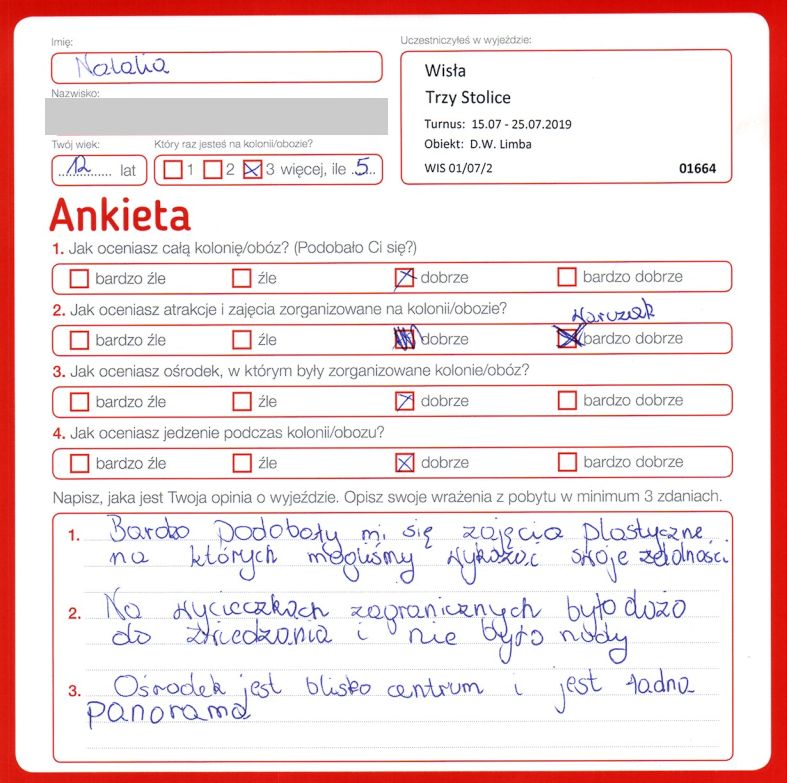 Imię:
Natalia
Nazwisko:
Twój wiek:
12 lat
Który raz jesteś na kolonii/obozie?
1 2 3 więcej, ile 5
Uczestniczyłeś w wyjeździe:
Wisła
Trzy Stolice
Turnus: 15.07 - 25.07.2019
Obiekt: D.W. Limba
WIS 01/07/2 01664
Ankieta
1. Jak oceniasz całą kolonię/obóz? (Podobało Ci się?)
bardzo źle źle dobrze bardzo dobrze
2. Jak oceniasz atrakcje i zajęcia zorganizowane na kolonii/obozie?
bardzo źle źle dobrze bardzo dobrze
3. Jak oceniasz ośrodek, w którym były zorganizowane kolonie/obóz?
bardzo źle źle dobrze bardzo dobrze
4. Jak oceniasz jedzenie podczas kolonii/obozu?
bardzo źle źle dobrze bardzo dobrze
Napisz, jaka jest Twoja opinia o wyjeździe. Opisz swoje wrażenia z pobytu w minimum 3 zdaniach.
1. Bardzo podobały mi się zajęcia plastyczne,
na których mogliśmy wykazać swoje zdolności
2. Na wycieczkach zagranicznych było dużo
do zwiedzania i nie było nudy
3. Ośrodek jest blisko centrum i jest ładna
panorama